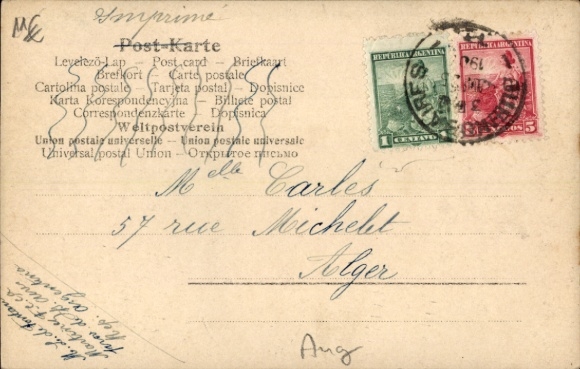 Imprimé
Post-Karte
Levelező-Lap — Post card — Briefkaart
Brefkort — Carte postale
Cartolina postale — Tarjeta postal — Dopisnice
Karta Korespondencyjna — Bilhete postal
Correspondenzkarte — Dopisnice
Weltpostverein
Union postale universelle — Union postale universale
Universal postal Union — Открытое письмо
REPÚBLICA ARGENTINA
1 CENTAVO 1
REPÚBLICA ARGENTINA
5
BUENOS AIRES
Melle Carlés
57 rue Michelet
Alger
Rep. Argentina
Aug